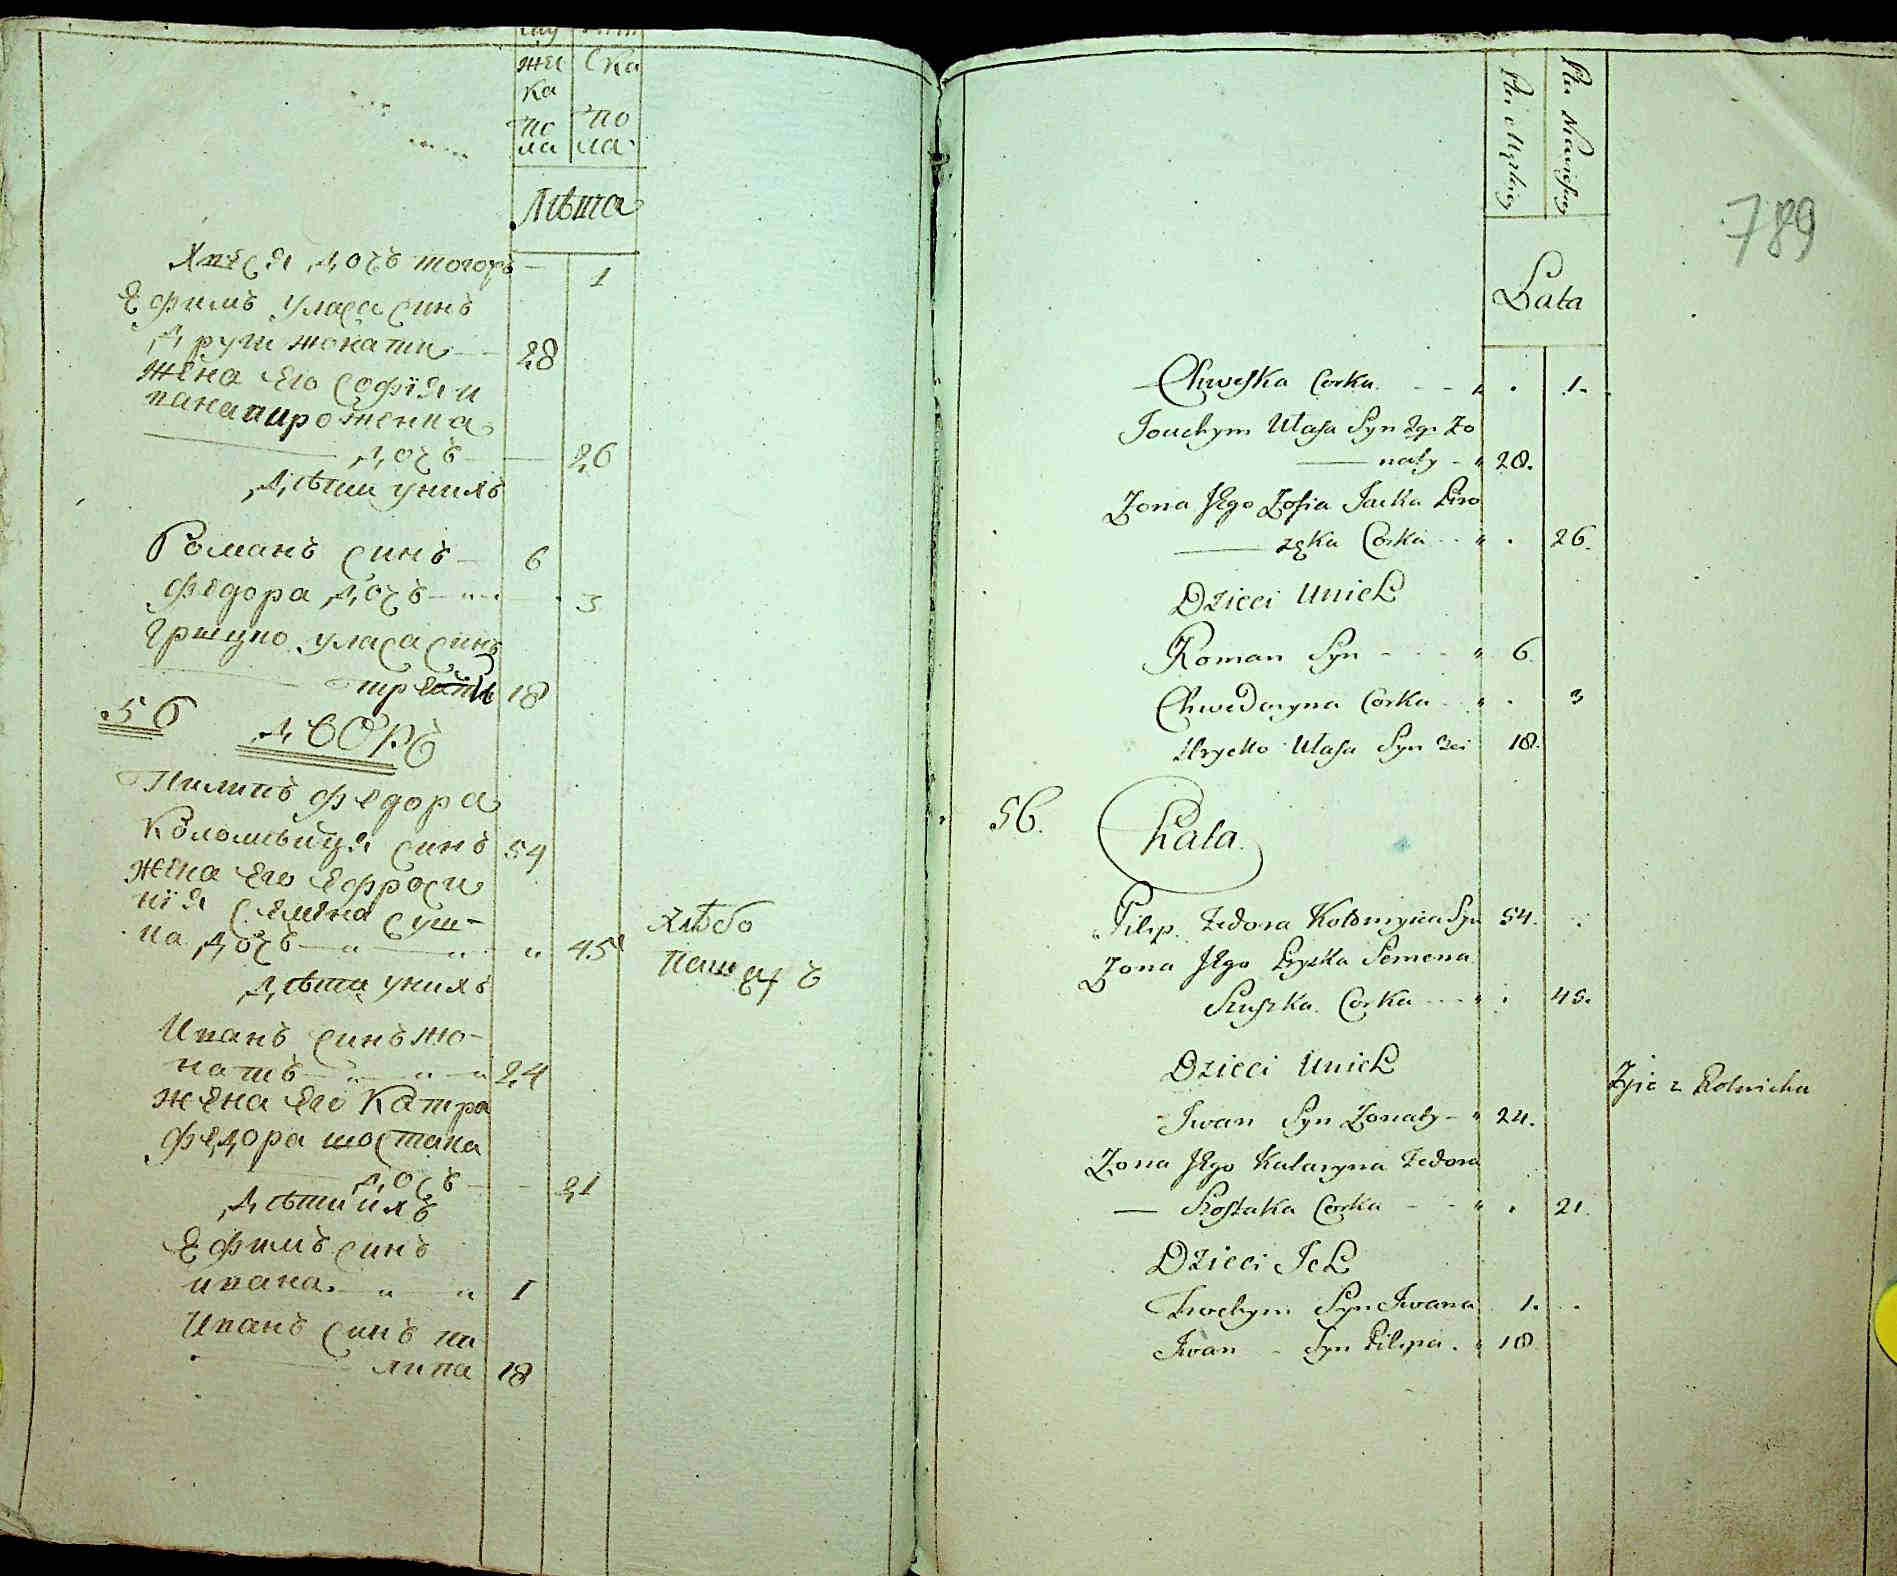 жи ска
ка
по по
ла ла
Лѣта
Хвеся дочь тогожъ — 1
Ефимъ Уласа синъ
други жонати — 28
жена его Софія и
вана пироженка
дочь — 26
дѣти унихъ
Романъ синъ — 6
Федора дочь — 3
Грицко Уласа синъ
трети 18
56 дворъ
Пилипъ Федора
Коломыйця синъ 54
жена его Ефроси
нія Семена Суш-
ка дочь — " — " 45
Хлѣбо
пашецъ
дѣти унихъ
Иванъ синъ жо-
натъ — " — " 24
жена его Катра
Федора шостака
дочь — — 21
дѣти ихъ
Ефимъ синъ
ивана — " " 1
Иванъ синъ пи
липа 18
Płci Męskiey
Płci Niewieściey
789
Lata
Chweska Corka - - " . 1.
Jouchym Ułasa Syn 2gi Żo
naty - " 28.
Żona Jego Zofia Jacka Piro
zęka Corka - - " . 26.
Dzieci Unich
Roman Syn - - - " 6.
Chwedoryna Corka - " . 3
Hrycko Ułasa Syn 3ci 18.
56. Chata.
Filip Fedora Kołomyica Syn 54.
Żona Jego Pryska Semena
Suszka Corka - - " . 45.
Dzieci Unich
Żyie z Rolnictwa
Iwan Syn Żonaty - " 24.
Żona Jego Kataryna Fedora
— Szostaka Corka - - " . 21.
Dzieci Ich
Iwchym Syn Iwana 1.
Iwan - Syn Filipa. " 18